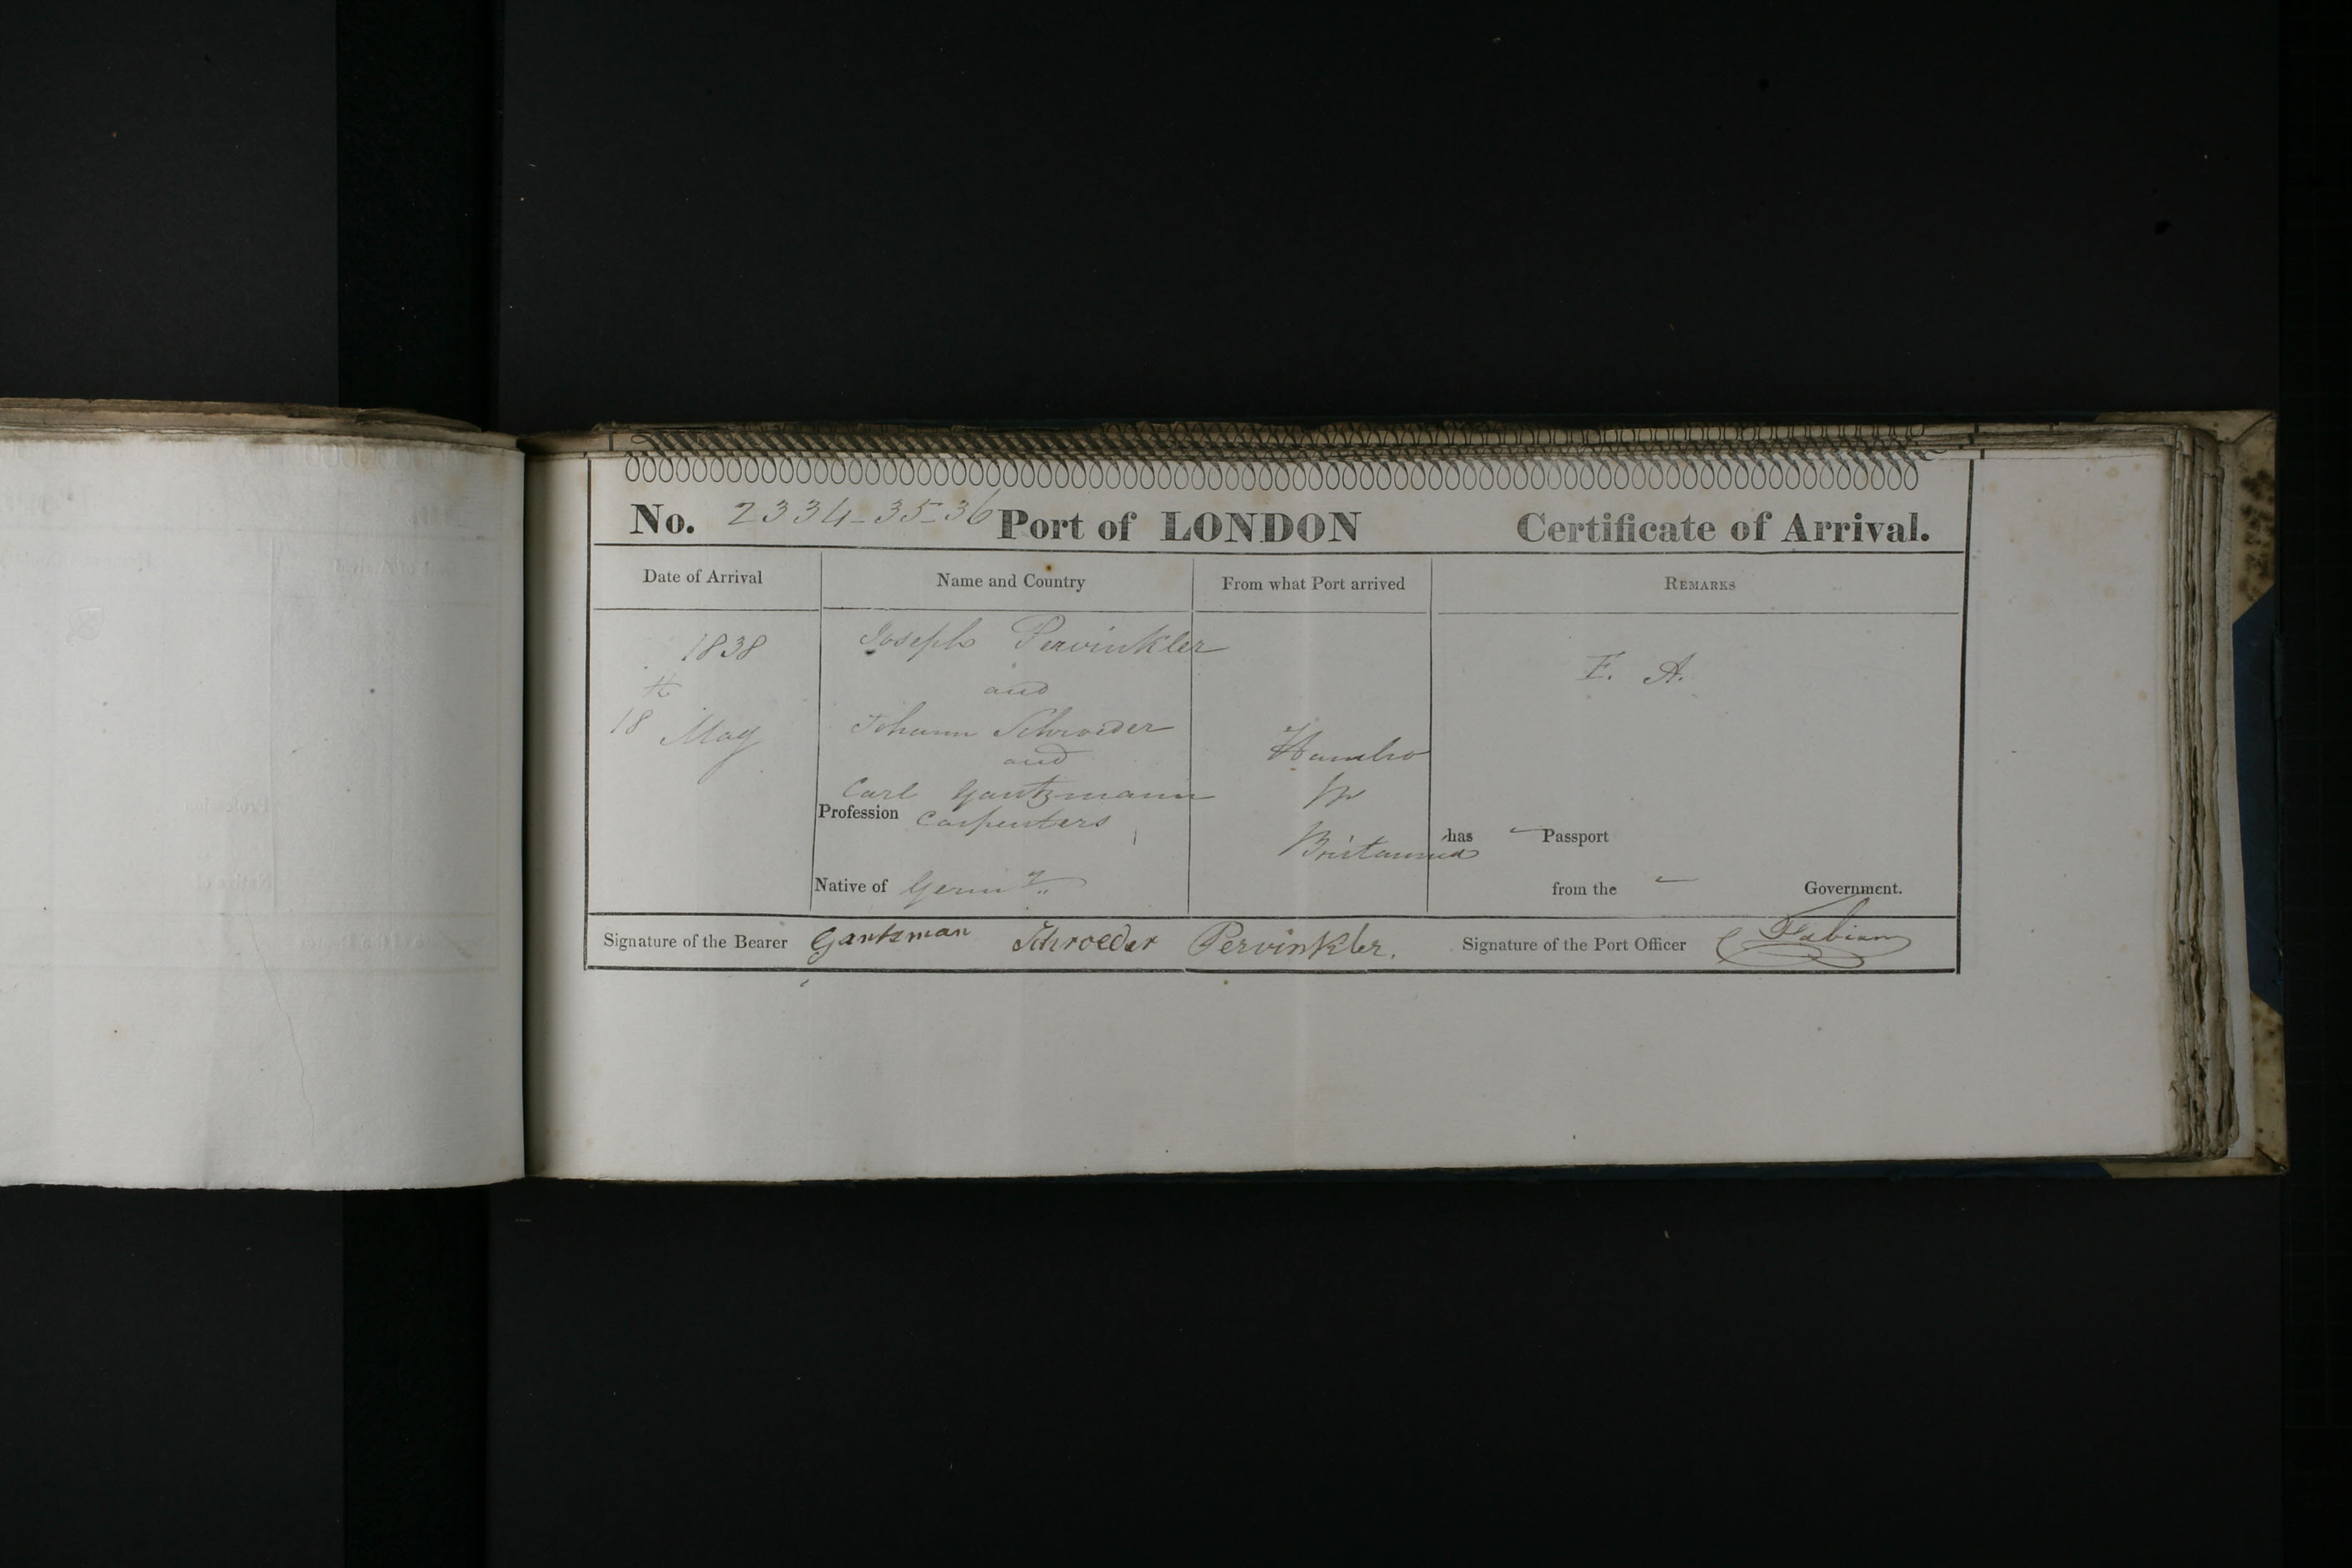 No. 2334-35-36 Port of LONDON Certificate of Arrival.
Date of Arrival Name and Country From what Port arrived REMARKS
1838
th
18 May
Joseph Pervinkler
and
Johann Schroeder
and
Carl Gantzmann
Profession Carpenters
Native of Germy
Hambro
pr
Britannia
F. A.
has - Passport
from the - Government.
Signature of the Bearer Gantzman Schroeder Pervinkler. Signature of the Port Officer Fabian